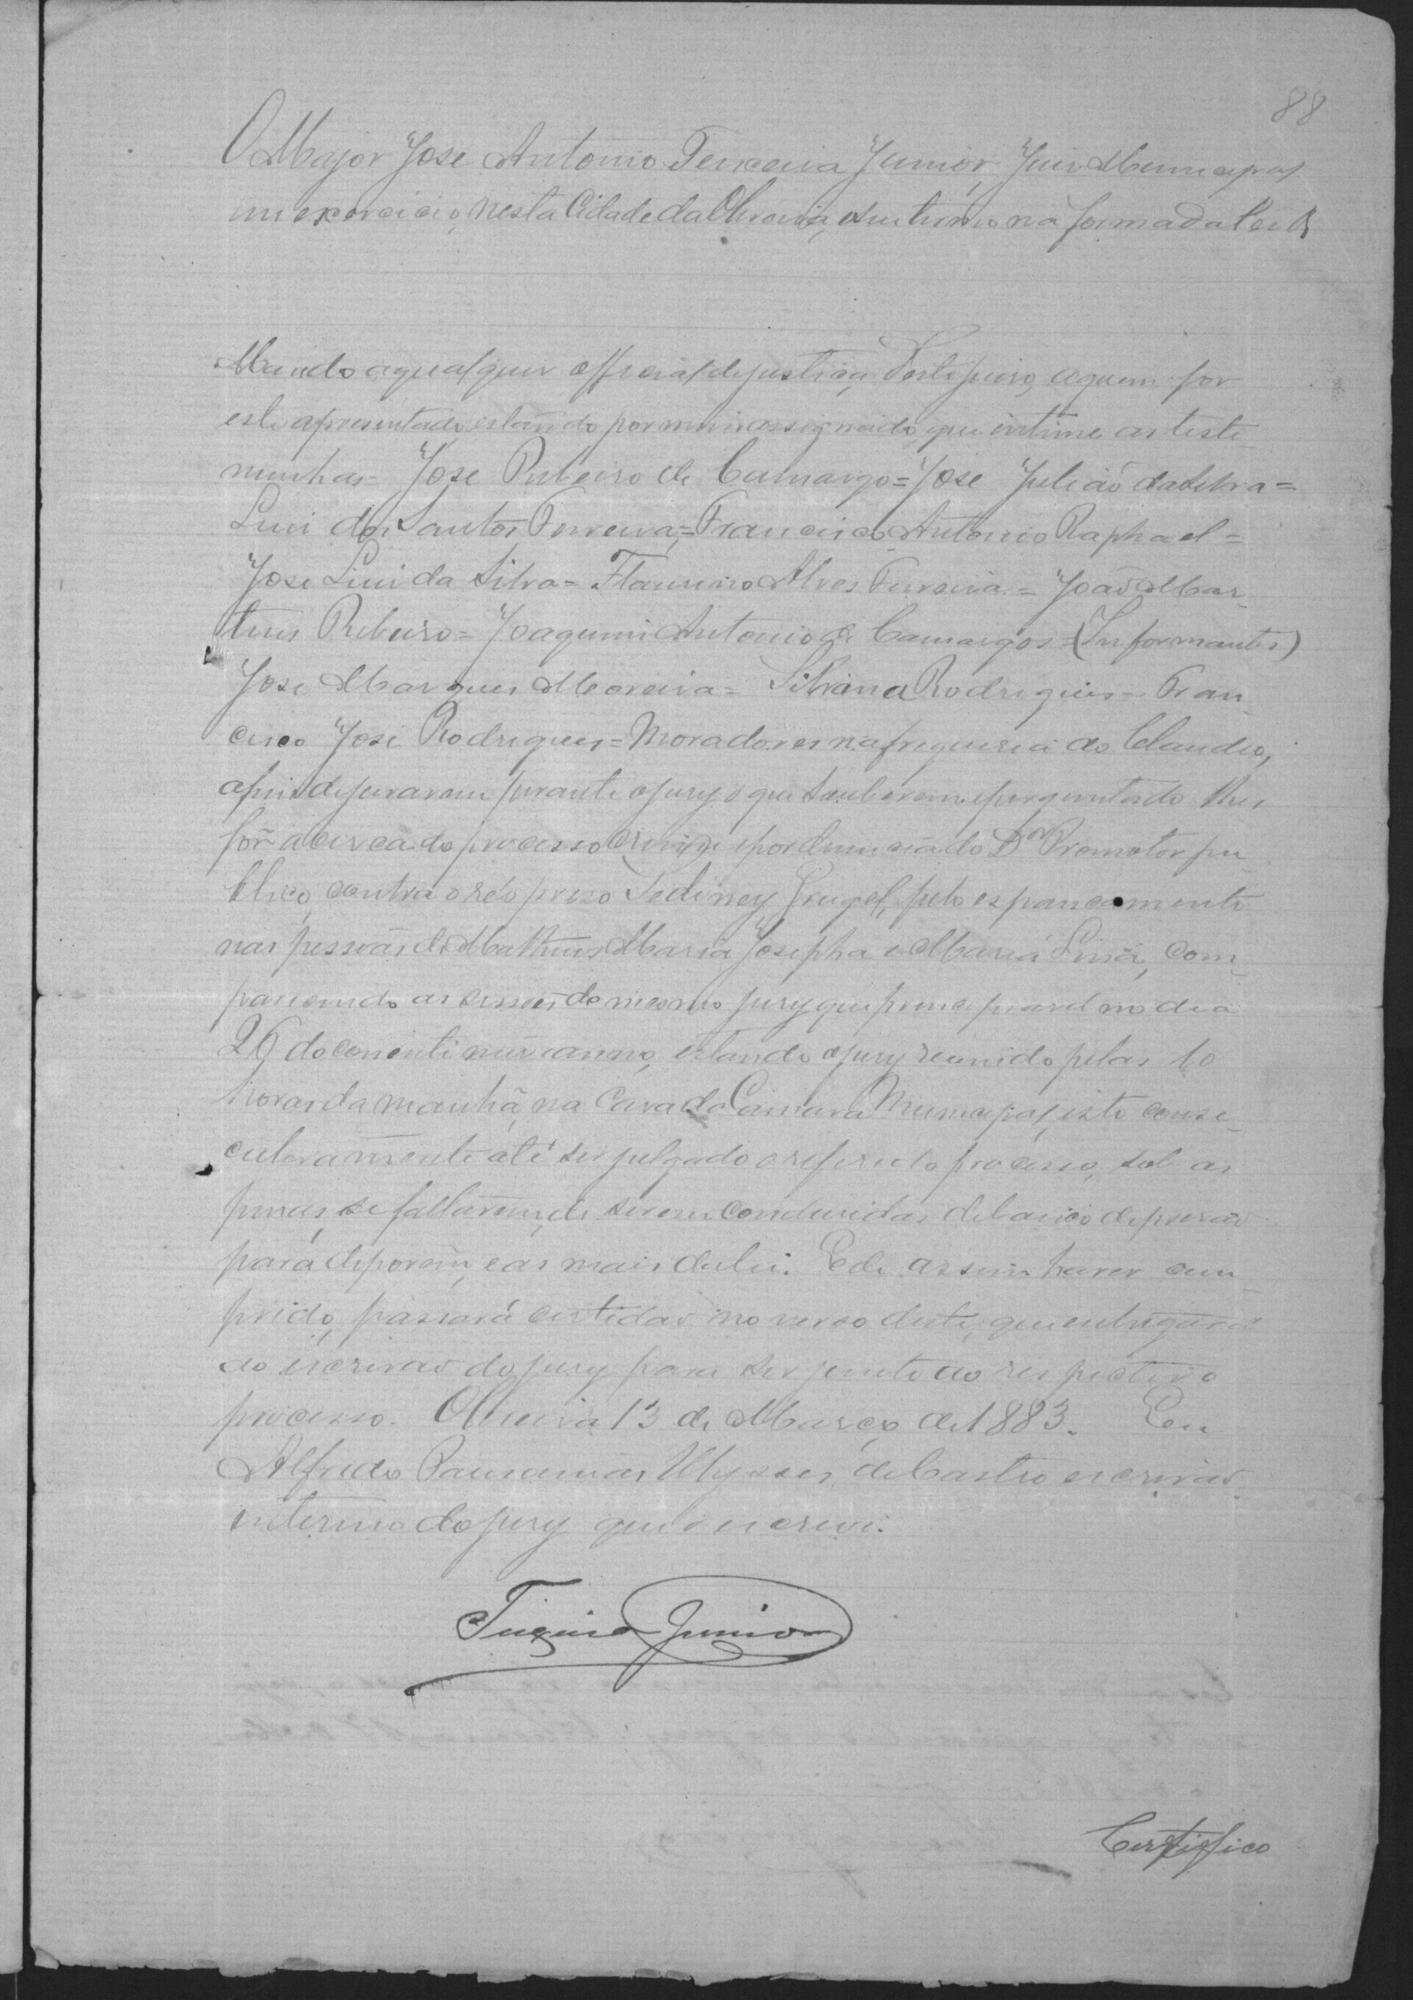 88
O Major Jose Antonio Teixeira Junior Juiz Municipal
em exercicio, nesta Cidade da Oliveira, e seu termo na forma da Lei &
Mando a qualquer official de justiça, deste juizo, a quem for
este apresentado, estando por mim assignado, que intime as teste
munhas = Jose Ribeiro de Camargo = Jose Julião da Silva =
Luis dos Santos Ferreira = Francisco Antonio Raphael =
Jose Luis da Silva = Flausino Alves Ferreira = João Mar_
tins Ribeiro = Joaquim Antonio de Camargos = (Informantes)
Jose Marques Moreira = Silvana Rodrigues = Fran_
cisco José Rodrigues = Moradores na freguesia do Claudio,
afim deporarem perante o jury o que souberem e perguntado lhes
for acerca do processo crime por denuncia do Dor Promotor pu_
blico, contra o réo preso, pelo espancamento
nas pessoas de Matheus Maria Josepha e Maria Luisa, com_
parecendo as sessões do mesmo jury que principiará no dia
26 do corrente mez e anno, estando o jury reunido pelas 10
horas da manhã, na Casa da Camara Municipal, isto conse_
cutivamente até ser julgado o referido processo, sob as
penas, se faltarem, de serem conduzidas debaixo de prisão
para deporem, e as mais da lei. E de assim haver cum_
prido, passará certidão no verso deste, que entregará
ao escrivão do jury para ser junto ao respectivo
processo. Oliveira 13 de Março de 1883. Eu
Alfredo Pausanias Ulysses de Castro escrivão
interino do jury que o escrevi.
Teixeira Junior
Certifico